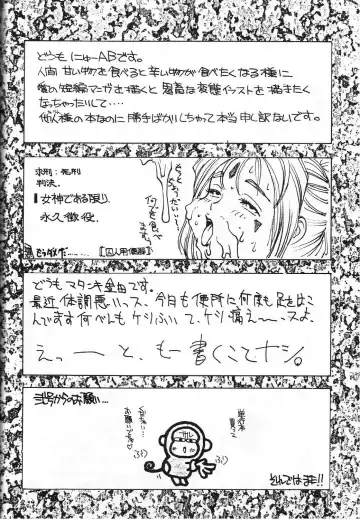 どうも にゅーABです。
人間 甘い物を食べると辛い物が食べたくなる様に
愛の短編マンガを描くと 愚畜な変態イラストを描きたく
なっちゃたりして‥‥
他人様の本なのに 勝手ばかりしちゃって本当申し訳ないです。
求刑:死刑
判決.
女神である限り
永久懲役.
【囚人用便器】
どうも マタンキ金田です。
最近体調悪いッス、今日も便所に何度も足をはこ
んでます 何べんもケツふいて、ケツ痛え〜〜スよ。
えっーと、もー書くことナシ。
からのお願い…
単行本
買って
お願いです
ぷり
ぷり
それではまた!!